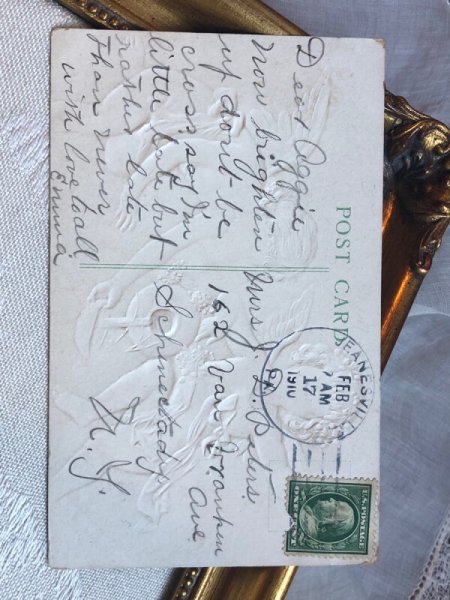 POST CARD
Dear Aggie
Now brighten
up don't be
cross. say I'm
little late but
rather late
than never
with love to all
Emma
FEB
17
7 AM
1910
PA.
Mrs. J. D. Peters.
162 Van Vranken
Ave
Schenectady
N. Y.
U.S. POSTAGE
ONE CENT